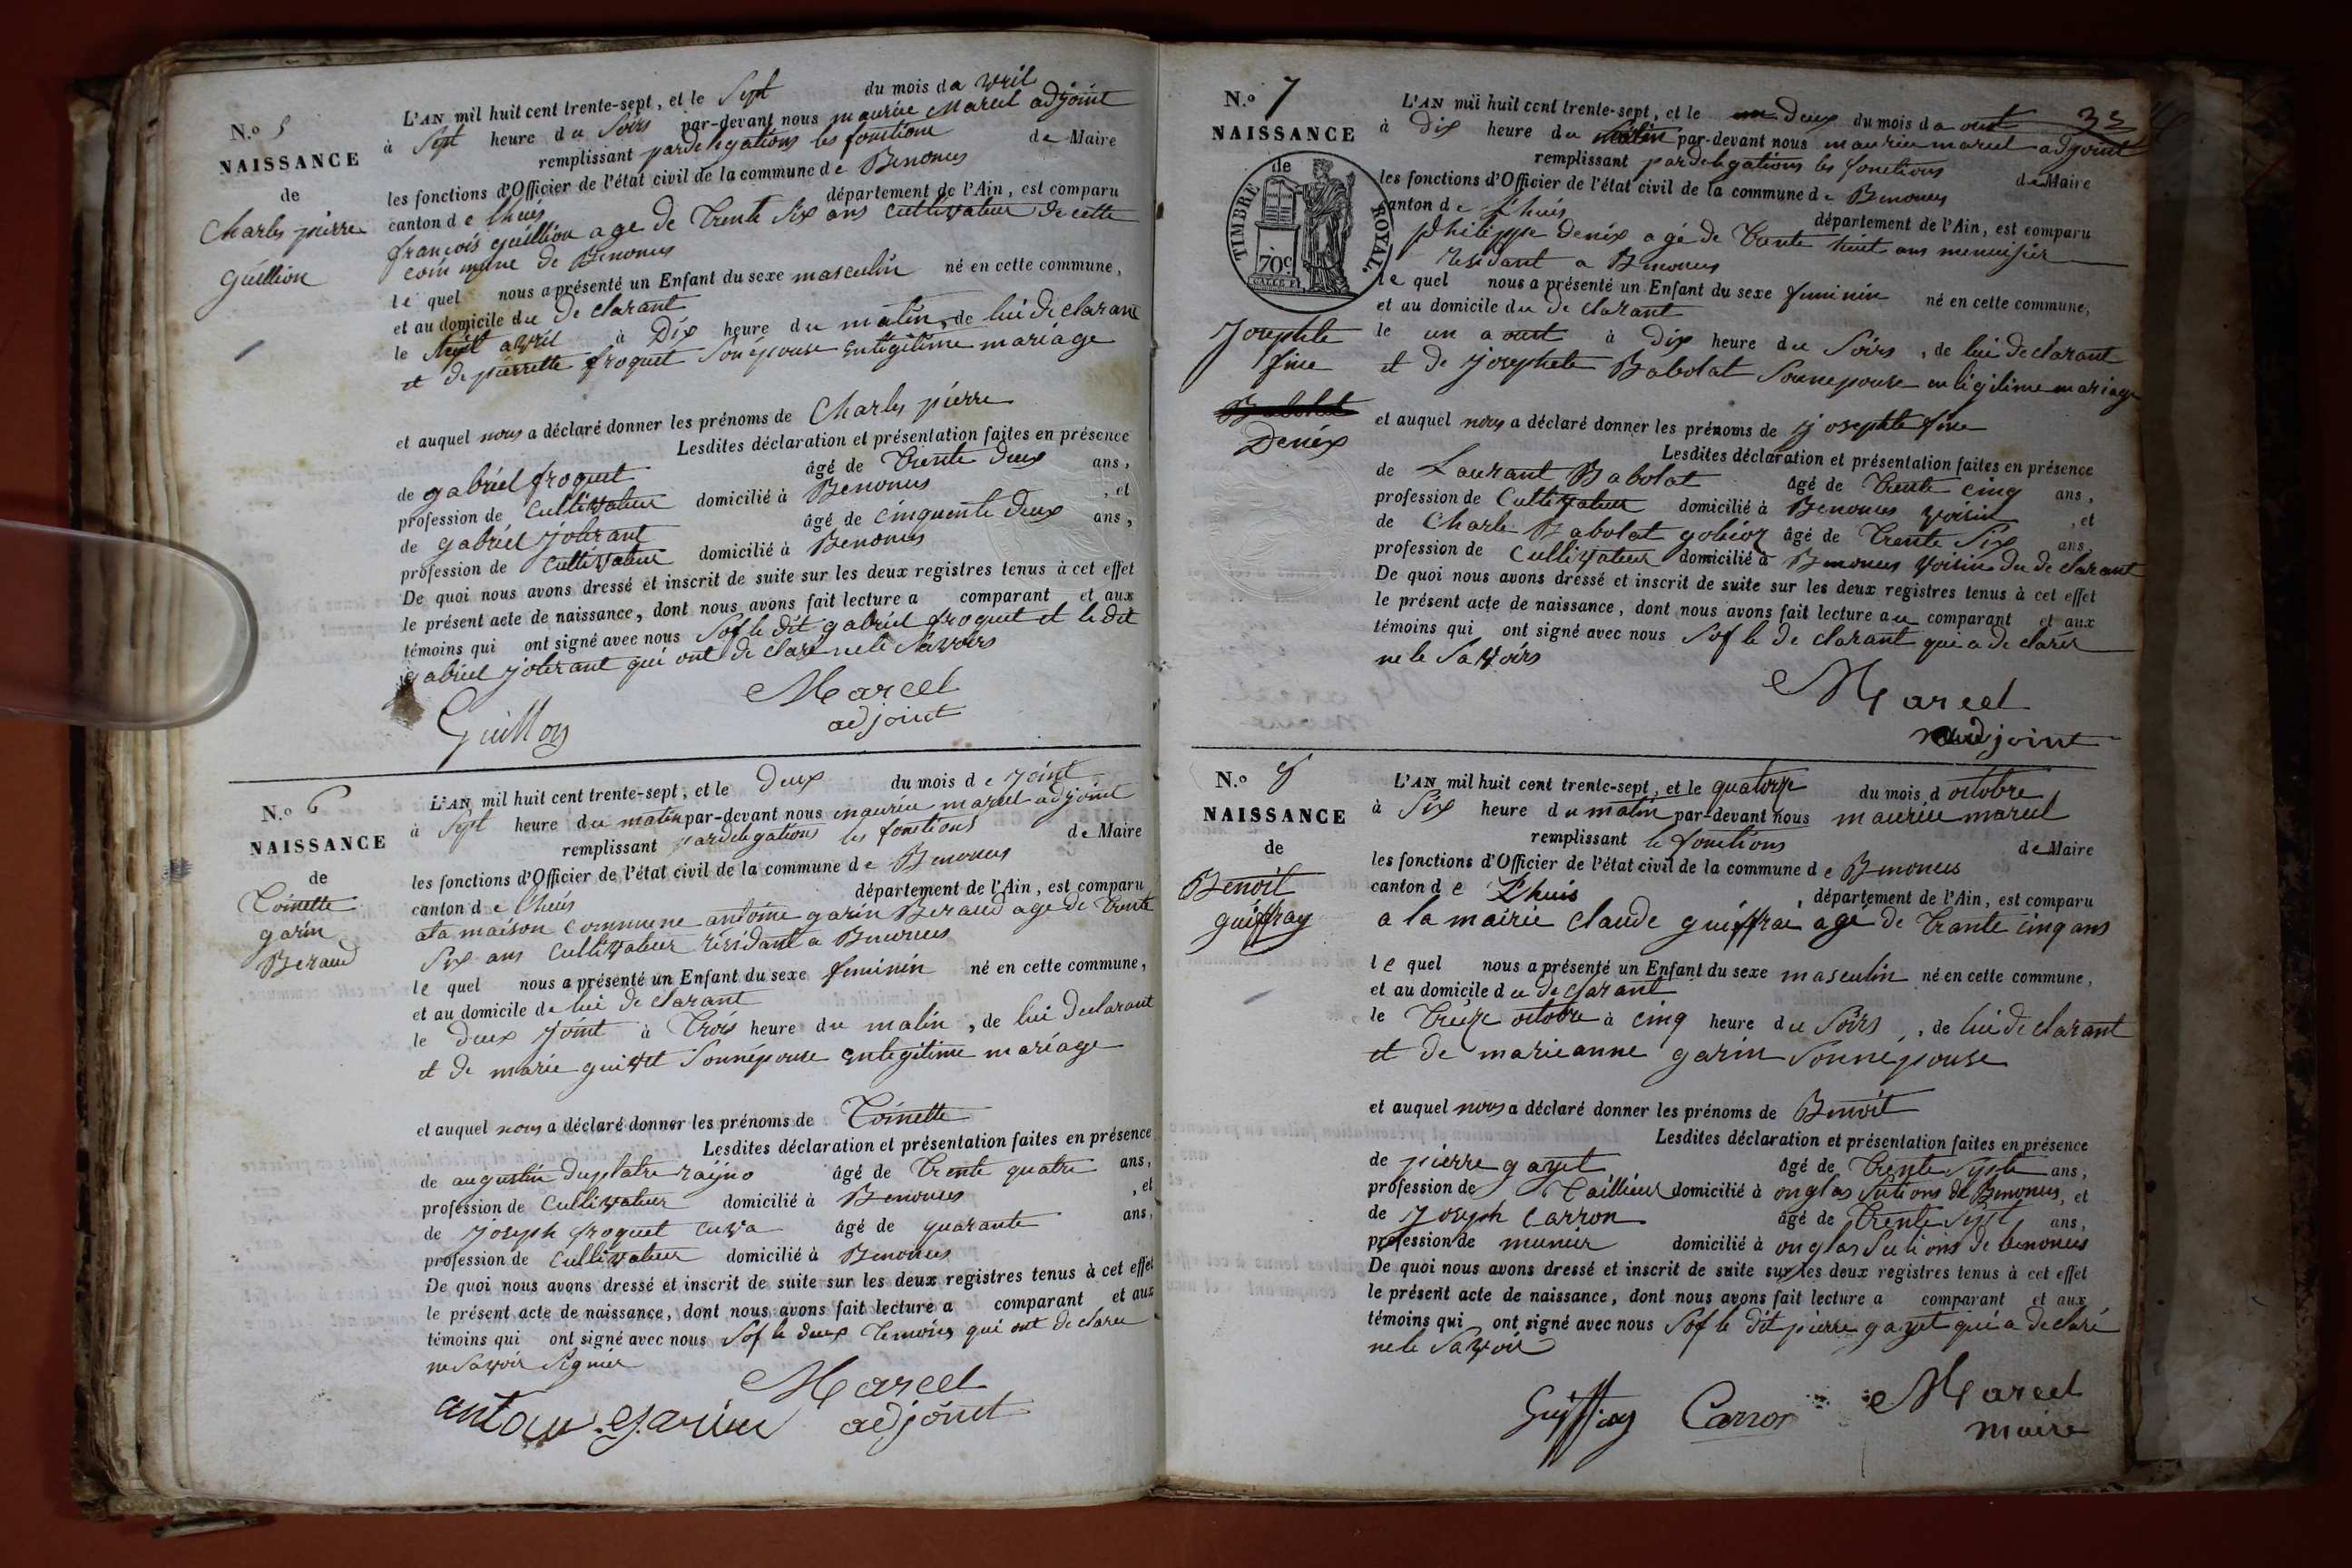 N.o 5
NAISSANCE
de
Charles pierre
Guillion
L'AN mil huit cent trente-sept, et le Sept du mois da vril
à Sept heure du Soirs par-devant nous maurice Marcel adjoint
remplissant pardelegations les fonctions de Maire
les fonctions d'Officier de l'état civil de la commune de Benonces
canton de lhuis département de l'Ain, est comparu
françois guillion age de trente Six ans cultivateur de cette
commune de Benonces
le quel nous a présenté un Enfant du sexe masculin né en cette commune,
et au domicile du de clarant
le Sept avril à Dix heure du matin, de lui de clarant
et de pierrette froquet Sonépouse entégitime mariage
et auquel nous a déclaré donner les prénoms de Charles pierre
Lesdites déclaration et présentation faites en présence
de gabriel froquet âgé de trente deux ans,
profession de cultivateur domicilié à Benonces, et
de gabriel âgé de cinquente deux ans,
profession de cultivateur domicilié à Benonces
De quoi nous avons dressé et inscrit de suite sur les deux registres tenus à cet effet
le présent acte de naissance, dont nous avons fait lecture a comparant et aux
témoins qui ont signé avec nous Sof le dit gabriel froquet et le dit
gabriel qui ont de claré ne le Savoirs
Marcel
adjoint
Guillon
N.o 6
NAISSANCE
de
Toinette
garin
Beraud
L'AN mil huit cent trente-sept, et le deux du mois de joint
à Sept heure du matin par-devant nous maurice marcel adjoint
remplissant pardelegations les fonctions de Maire
les fonctions d'Officier de l'état civil de la commune de Benonces
canton de lhuis département de l'Ain, est comparu
ala maison commune antoine garin Beraud age de trente
Six ans cultivateur résidant a Benonces
le quel nous a présenté un Enfant du sexe feminin né en cette commune,
et au domicile de lui de clarant
le deux joint à trois heure du matin, de lui declarant
et de marie Sonnépouse entegitime mariage
et auquel nous a déclaré donner les prénoms de Toinette
Lesdites déclaration et présentation faites en présence
de augustin duplatre âgé de trente quatre ans,
profession de cultivateur domicilié à Benonces, et
de joseph froquet cuva âgé de quarante ans,
profession de cultivateur domicilié à Benonces
De quoi nous avons dressé et inscrit de suite sur les deux registres tenus à cet effet
le présent acte de naissance, dont nous avons fait lecture a comparant et aux
témoins qui ont signé avec nous Sof le deux temoins qui ont de clare
ne Savoir Signier
Marcel
adjoint
garin
33
N.o 7
NAISSANCE
de
TIMBRE ROYAL.
70c
Josephte
fine
Denix
L'AN mil huit cent trente-sept, et le deux du mois da out
à Dix heure du matin par-devant nous maurice marcel adjoint
remplissant pardelegations les fonctions de Maire
les fonctions d'Officier de l'état civil de la commune de Benonces
canton de Lhuis département de l'Ain, est comparu
philippe denix agé de trente huit ans menuisier
residant a Benonces
le quel nous a présenté un Enfant du sexe feminin né en cette commune,
et au domicile du de clarant
le un a out à dix heure du Soirs, de lui declarant
et de josephete Babolat Sonnepouse en légitime mariage
et auquel nous a déclaré donner les prénoms de josephte fine
Lesdites déclaration et présentation faites en présence
de Laurant Babolat âgé de trente cinq ans,
profession de Cultivateur domicilié à Benonces voisin, et
de Charle Babolat âgé de trente Six ans
profession de cultivateur domicilié à Benonces voisin du de clarant
De quoi nous avons dressé et inscrit de suite sur les deux registres tenus à cet effet
le présent acte de naissance, dont nous avons fait lecture au comparant et aux
témoins qui ont signé avec nous Sof le de clarant qui a de clarér
ne le Savoirs
Marcel
adjoint
N.o 8
NAISSANCE
de
Benoit
guiffray
L'AN mil huit cent trente-sept, et le quatorze du mois d octobre
à Six heure du matin par-devant nous maurice marcel
remplissant le fonctions de Maire
les fonctions d'Officier de l'état civil de la commune de Benonces
canton de Lhuis, département de l'Ain, est comparu
a la mairie claude guiffrai agé de trante cinq ans
le quel nous a présenté un Enfant du sexe masculin né en cette commune,
et au domicile du de clarant
le treize octobre à cinq heure du Soirs, de lui de clarant
et de marieanne garin Sonnépouse
et auquel nous a déclaré donner les prénoms de Benoit
Lesdites déclaration et présentation faites en présence
de pierre gayet âgé de trente Septe ans,
profession de Taillieur domicilié à onglas Sections de Benonces, et
de joseph carron âgé de trente Sept ans,
profession de munier domicilié à onglas Sections de benonces
De quoi nous avons dressé et inscrit de suite sur les deux registres tenus à cet effet
le présent acte de naissance, dont nous avons fait lecture a comparant et aux
témoins qui ont signé avec nous Sof le dit pierre gayet qui a declaré
ne le Savoir
Guiffray Carron Marcel
maire